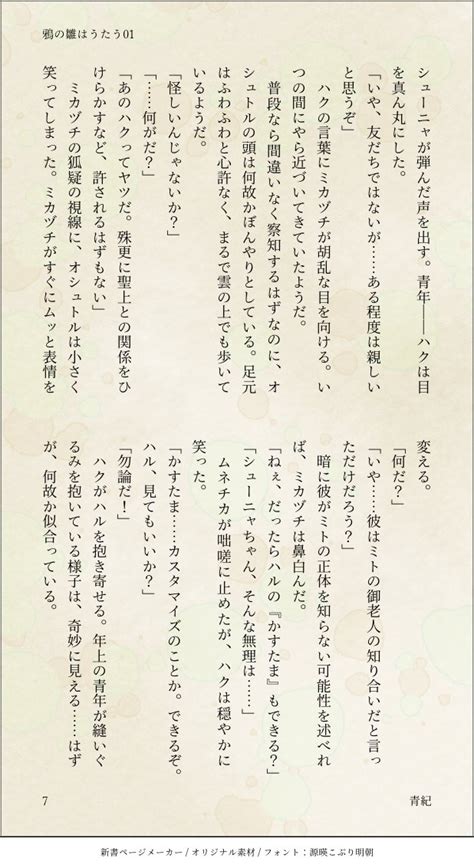 鴉の雛はうたう01
シューニャが弾んだ声を出す。青年――ハクは目
を真ん丸にした。
「いや、友だちではないが……ある程度は親しい
と思うぞ」
ハクの言葉にミカヅチが胡乱な目を向ける。い
つの間にやら近づいてきていたようだ。
普段なら間違いなく察知するはずなのに、オ
シュトルの頭は何故かぼんやりとしている。足元
はふわふわと心許なく、まるで雲の上でも歩いて
いるようだ。
「怪しいんじゃないか？」
「……何がだ？」
「あのハクってヤツだ。殊更に聖上との関係をひ
けらかすなど、許されるはずもない」
ミカヅチの狐疑の視線に、オシュトルは小さく
笑ってしまった。ミカヅチがすぐにムッと表情を
変える。
「何だ？」
「いや……彼はミトの御老人の知り合いだと言っ
ただけだろう？」
暗に彼がミトの正体を知らない可能性を述べれ
ば、ミカヅチは鼻白んだ。
「ねぇ、だったらハルの『かすたま』もできる？」
「シューニャちゃん、そんな無理は……」
ムネチカが咄嗟に止めたが、ハクは穏やかに
笑った。
「かすたま……カスタマイズのことか。できるぞ。
ハル、見てもいいか？」
「勿論だ！」
ハクがハルを抱き寄せる。年上の青年が縫いぐ
るみを抱いている様子は、奇妙に見える……はず
が、何故か似合っている。
7
青紀
新書ページメーカー / オリジナル素材 / フォント：源暎こぶり明朝